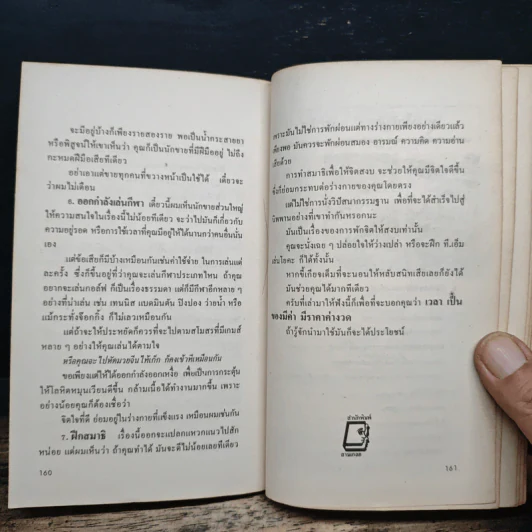 จะมีอยู่บ้างก็เพียงรายสองราย พอเป็นน้ำกระสายยา
หรือพิสูจน์ให้เขาเห็นว่า คุณก็เป็นนักขายที่มีฝีมืออยู่ ไม่ถึง
กะหมดฝีมือเสียทีเดียว
อย่าเอาแต่ขายทุกคนที่ขวางหน้าเป็นใช้ได้ เดี๋ยวจะ
ว่าผมไม่เตือน
6. ออกกำลังเล่นกีฬา เดี๋ยวนี้ผมเห็นนักขายส่วนใหญ่
ให้ความสนใจในเรื่องนี้ไม่น้อยทีเดียว จะว่าไปมันก็เกี่ยวกับ
ความอยู่รอด หรือการใช้เวลาที่คุณมีอยู่ให้ได้นานกว่าคนอื่นนั่น
เอง
แต่ข้อเสียก็มีอยู่บ้างเหมือนกันเช่นค่าใช้จ่าย ในการเล่นแต่
ละครั้ง ซึ่งก็ขึ้นอยู่ที่ว่าคุณจะเล่นกีฬาประเภทไหน ถ้าคุณ
อยากจะเล่นกอล์ฟ ก็เป็นเรื่องธรรมดา แต่ก็มีกีฬาอีกหลาย ๆ
อย่างที่น่าเล่น เช่น เทนนิส แบดมินตัน ปิงปอง ว่ายน้ำ หรือ
แม้กระทั่งจ๊อกกิ้ง ก็ไม่เลวเหมือนกัน
แต่ถ้าจะให้ประหยัดก็ควรที่จะไปตามสโมสรที่มีเกมส์
หลาย ๆ อย่างให้คุณเล่นได้ตามใจ
หรือคุณจะไปหัดมวยจีนไท้เก๊ก ก็คงเข้าทีเหมือนกัน
ขอเพียงแต่ให้ได้ออกกำลังออกเหงื่อ เพื่อเป็นการกระตุ้น
ให้โลหิตหมุนเวียนดีขึ้น กล้ามเนื้อได้ทำงานมากขึ้น เพราะ
อย่างน้อยคุณก็ต้องเชื่อว่า
จิตใจที่ดี ย่อมอยู่ในร่างกายที่แข็งแรง เหมือนผมเช่นกัน
7. ฝึกสมาธิ เรื่องนี้ออกจะแปลกแหวกแนวไปสัก
หน่อย แต่ผมเห็นว่า ถ้าคุณทำได้ มันจะดีไม่น้อยเลยทีเดียว
160
เพราะมันไม่ใช่การพักผ่อนแต่ทางร่างกายเพียงอย่างเดียวแล้ว
เพียงพอ มันควรจะพักผ่อนสมอง อารมณ์ ความคิด ความอ่าน
เสียด้วย
การทำสมาธิเพื่อให้จิตสงบ จะช่วยให้คุณมีจิตใจดีขึ้น
ซึ่งก็ย่อมกระทบต่อร่างกายของคุณโดยตรง
แต่ไม่ใช่การนั่งวิปัสสนากรรมฐาน เพื่อที่จะได้สำเร็จไปสู่
นิพพานอย่างที่เขาทำกันหรอกนะ
มันเป็นเรื่องของการพักจิตให้สงบเท่านั้น
คุณจะนั่งเฉย ๆ ปล่อยใจให้ว่างเปล่า หรือจะฝึก ที.เอ็ม
เล่นโยคะ ก็ได้ทั้งนั้น
หากขี้เกียจเต็มที่จะนอนให้หลับสนิทเสียเลยก็ยังได้
มันช่วยคุณได้มากทีเดียว
ครับที่เล่ามาให้ฟังนี้ก็เพื่อที่จะบอกคุณว่า เวลา เป็น
ของมีค่า มีราคาค่างวด
ถ้ารู้จักนำมาใช้มันก็จะได้ประโยชน์
สำนักพิมพ์
161